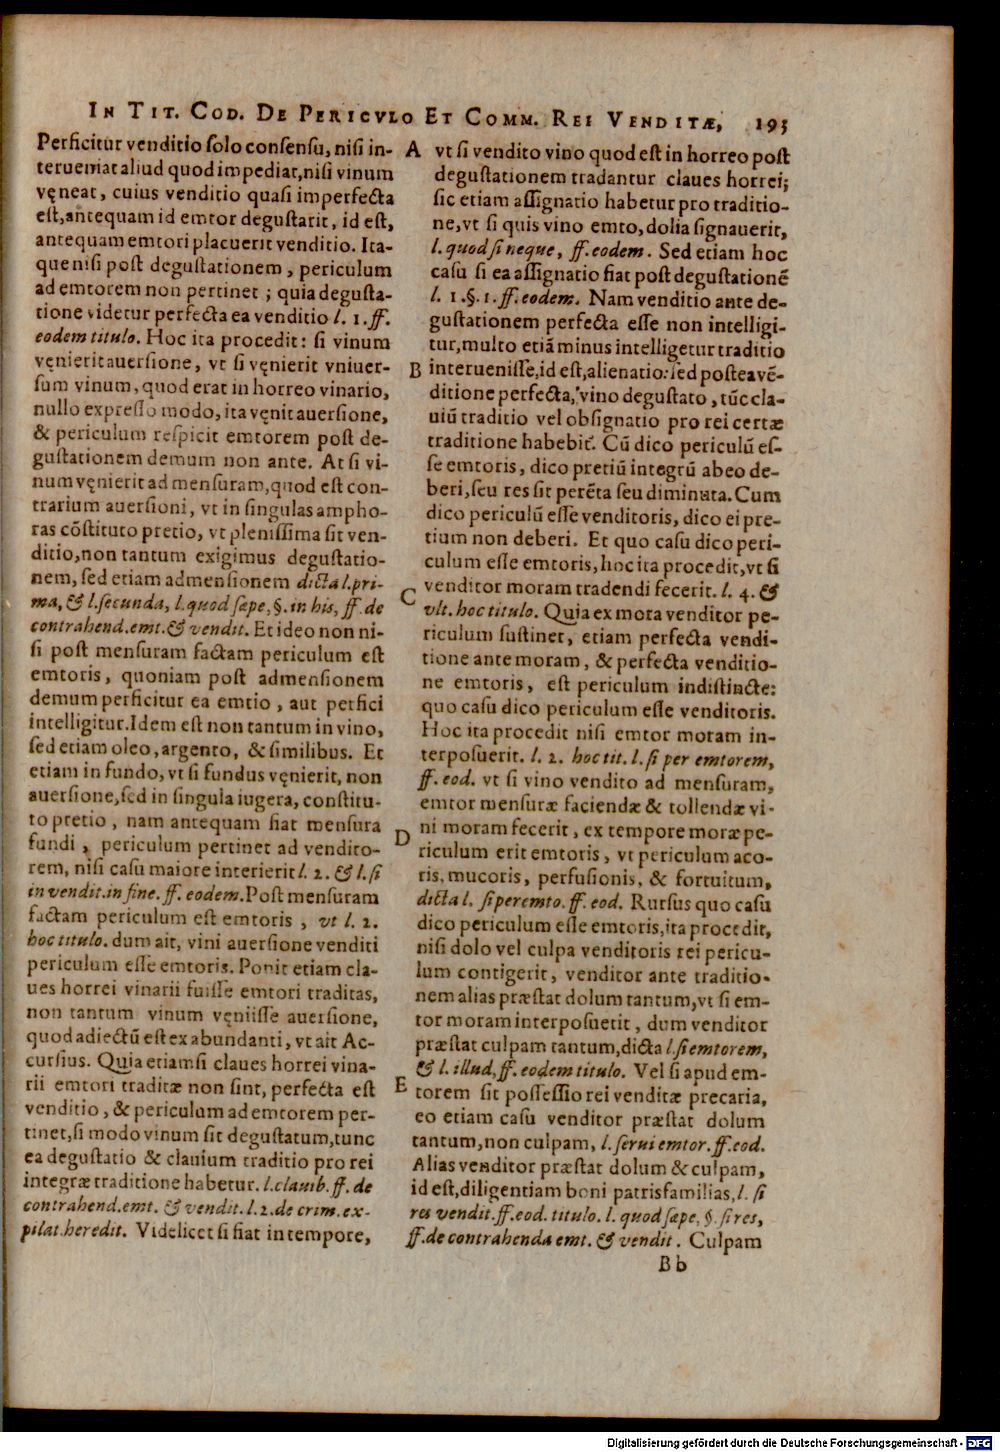 IN TIT. COD. DE PERICVLO ET COMM. REI VENDITÆ, 193
Perficitur venditio ſolo conſenſu, niſi in-
terueniat aliud quod impediat, niſi vinum
vęneat, cuius venditio quaſi imperfecta
eſt, antequam id emtor deguſtarit, id eſt,
antequam emtori placuerit venditio. Ita-
que niſi poſt deguſtationem, periculum
ad emtorem non pertinet; quia deguſta-
tione videtur perfecta ea venditio l. 1. ff.
eodem titulo. Hoc ita procedit: ſi vinum
vęnierit auerſione, vt ſi vęnierit vniuer-
ſum vinum, quod erat in horreo vinario,
nullo expreſſo modo, ita vęnit auerſione,
& periculum reſpicit emtorem poſt de-
guſtationem demum non ante. At ſi vi-
num vęnierit ad menſuram, quod eſt con-
trarium auerſioni, vt in ſingulas ampho-
ras cōſtituto pretio, vt pleniſſima ſit ven-
ditio, non tantum exigimus deguſtatio-
nem, ſed etiam admenſionem dicta l. pri-
ma, & l. ſecunda, l. quod ſæpe, §. in his, ff. de
contrahend. emt. & vendit. Et ideo non ni-
ſi poſt menſuram factam periculum eſt
emtoris, quoniam poſt admenſionem
demum perficitur ea emtio, aut perfici
intelligitur. Idem eſt non tantum in vino,
ſed etiam oleo, argento, & ſimilibus. Et
etiam in fundo, vt ſi fundus vęnierit, non
auerſione, ſed in ſingula iugera, conſtitu-
to pretio, nam antequam fiat menſura
fundi, periculum pertinet ad vendito-
rem, niſi caſu maiore interierit l. 2. & l. ſi
in vendit. in fine. ff. eodem. Poſt menſuram
factam periculum eſt emtoris, vt l. 2.
hoc titulo. dum ait, vini auerſione venditi
periculum eſſe emtoris. Ponit etiam cla-
ues horrei vinarii fuiſſe emtori traditas,
non tantum vinum vęniiſſe auerſione,
quod adiectū eſt ex abundanti, vt ait Ac-
curſius. Quia etiamſi claues horrei vina-
rii emtori traditæ non ſint, perfecta eſt
venditio, & periculum ad emtorem per-
tinet, ſi modo vinum ſit deguſtatum, tunc
ea deguſtatio & clauium traditio pro rei
integræ traditione habetur. l. clauib. ff. de
contrahend. emt. & vendit. l. 2. de crim. ex-
pilat. heredit. Videlicet ſi fiat in tempore,
A vt ſi vendito vino quod eſt in horreo poſt
deguſtationem tradantur claues horrei;
ſic etiam aſſignatio habetur pro traditio-
ne, vt ſi quis vino emto, dolia ſignauerit,
l. quod ſi neque, ff. eodem. Sed etiam hoc
caſu ſi ea aſſignatio fiat poſt deguſtationē
l. 1. §. 1. ff. eodem. Nam venditio ante de-
guſtationem perfecta eſſe non intelligi-
tur, multo etiā minus intelligetur traditio
B interueniſſe, id eſt, alienatio: ſed poſtea vē-
ditione perfecta, vino deguſtato, tūc cla-
uiū traditio vel obſignatio pro rei certæ
traditione habebit̃. Cū dico periculū eſ-
ſe emtoris, dico pretiū integrū ab eo de-
beri, ſeu res ſit perēta ſeu diminuta. Cum
dico periculū eſſe venditoris, dico ei pre-
tium non deberi. Et quo caſu dico peri-
culum eſſe emtoris, hoc ita procedit, vt ſi
C venditor moram tradendi fecerit. l. 4. &
vlt. hoc titulo. Quia ex mora venditor pe-
riculum ſuſtinet, etiam perfecta vendi-
tione ante moram, & perfecta venditio-
ne emtoris, eſt periculum indiſtincte:
quo caſu dico periculum eſſe venditoris.
Hoc ita procedit niſi emtor moram in-
terpoſuerit. l. 2. hoc tit. l. ſi per emtorem,
ff. eod. vt ſi vino vendito ad menſuram,
emtor menſuræ faciendæ & tollendæ vi-
D ni moram fecerit, ex tempore moræ pe-
riculum erit emtoris, vt periculum aco-
ris, mucoris, perfuſionis, & fortuitum,
dicta l. ſi per emto. ff. eod. Rurſus quo caſu
dico periculum eſſe emtoris, ita procedit,
niſi dolo vel culpa venditoris rei pericu-
lum contigerit, venditor ante traditio-
nem alias præſtat dolum tantum, vt ſi em-
tor moram interpoſuerit, dum venditor
præſtat culpam tantum, dicta l. ſi emtorem,
& l. illud, ff. eodem titulo. Vel ſi apud em-
E torem ſit poſſeſſio rei venditæ precaria,
eo etiam caſu venditor præſtat dolum
tantum, non culpam, l. ſerui emtor. ff. eod.
Alias venditor præſtat dolum & culpam,
id eſt, diligentiam boni patrisfamilias, l. ſi
res vendit. ff. eod. titulo. l. quod ſæpe, §. ſi res,
ff. de contrahenda emt. & vendit. Culpam
Bb
Digitalisierung gefördert durch die Deutsche Forschungsgemeinschaft - DFG